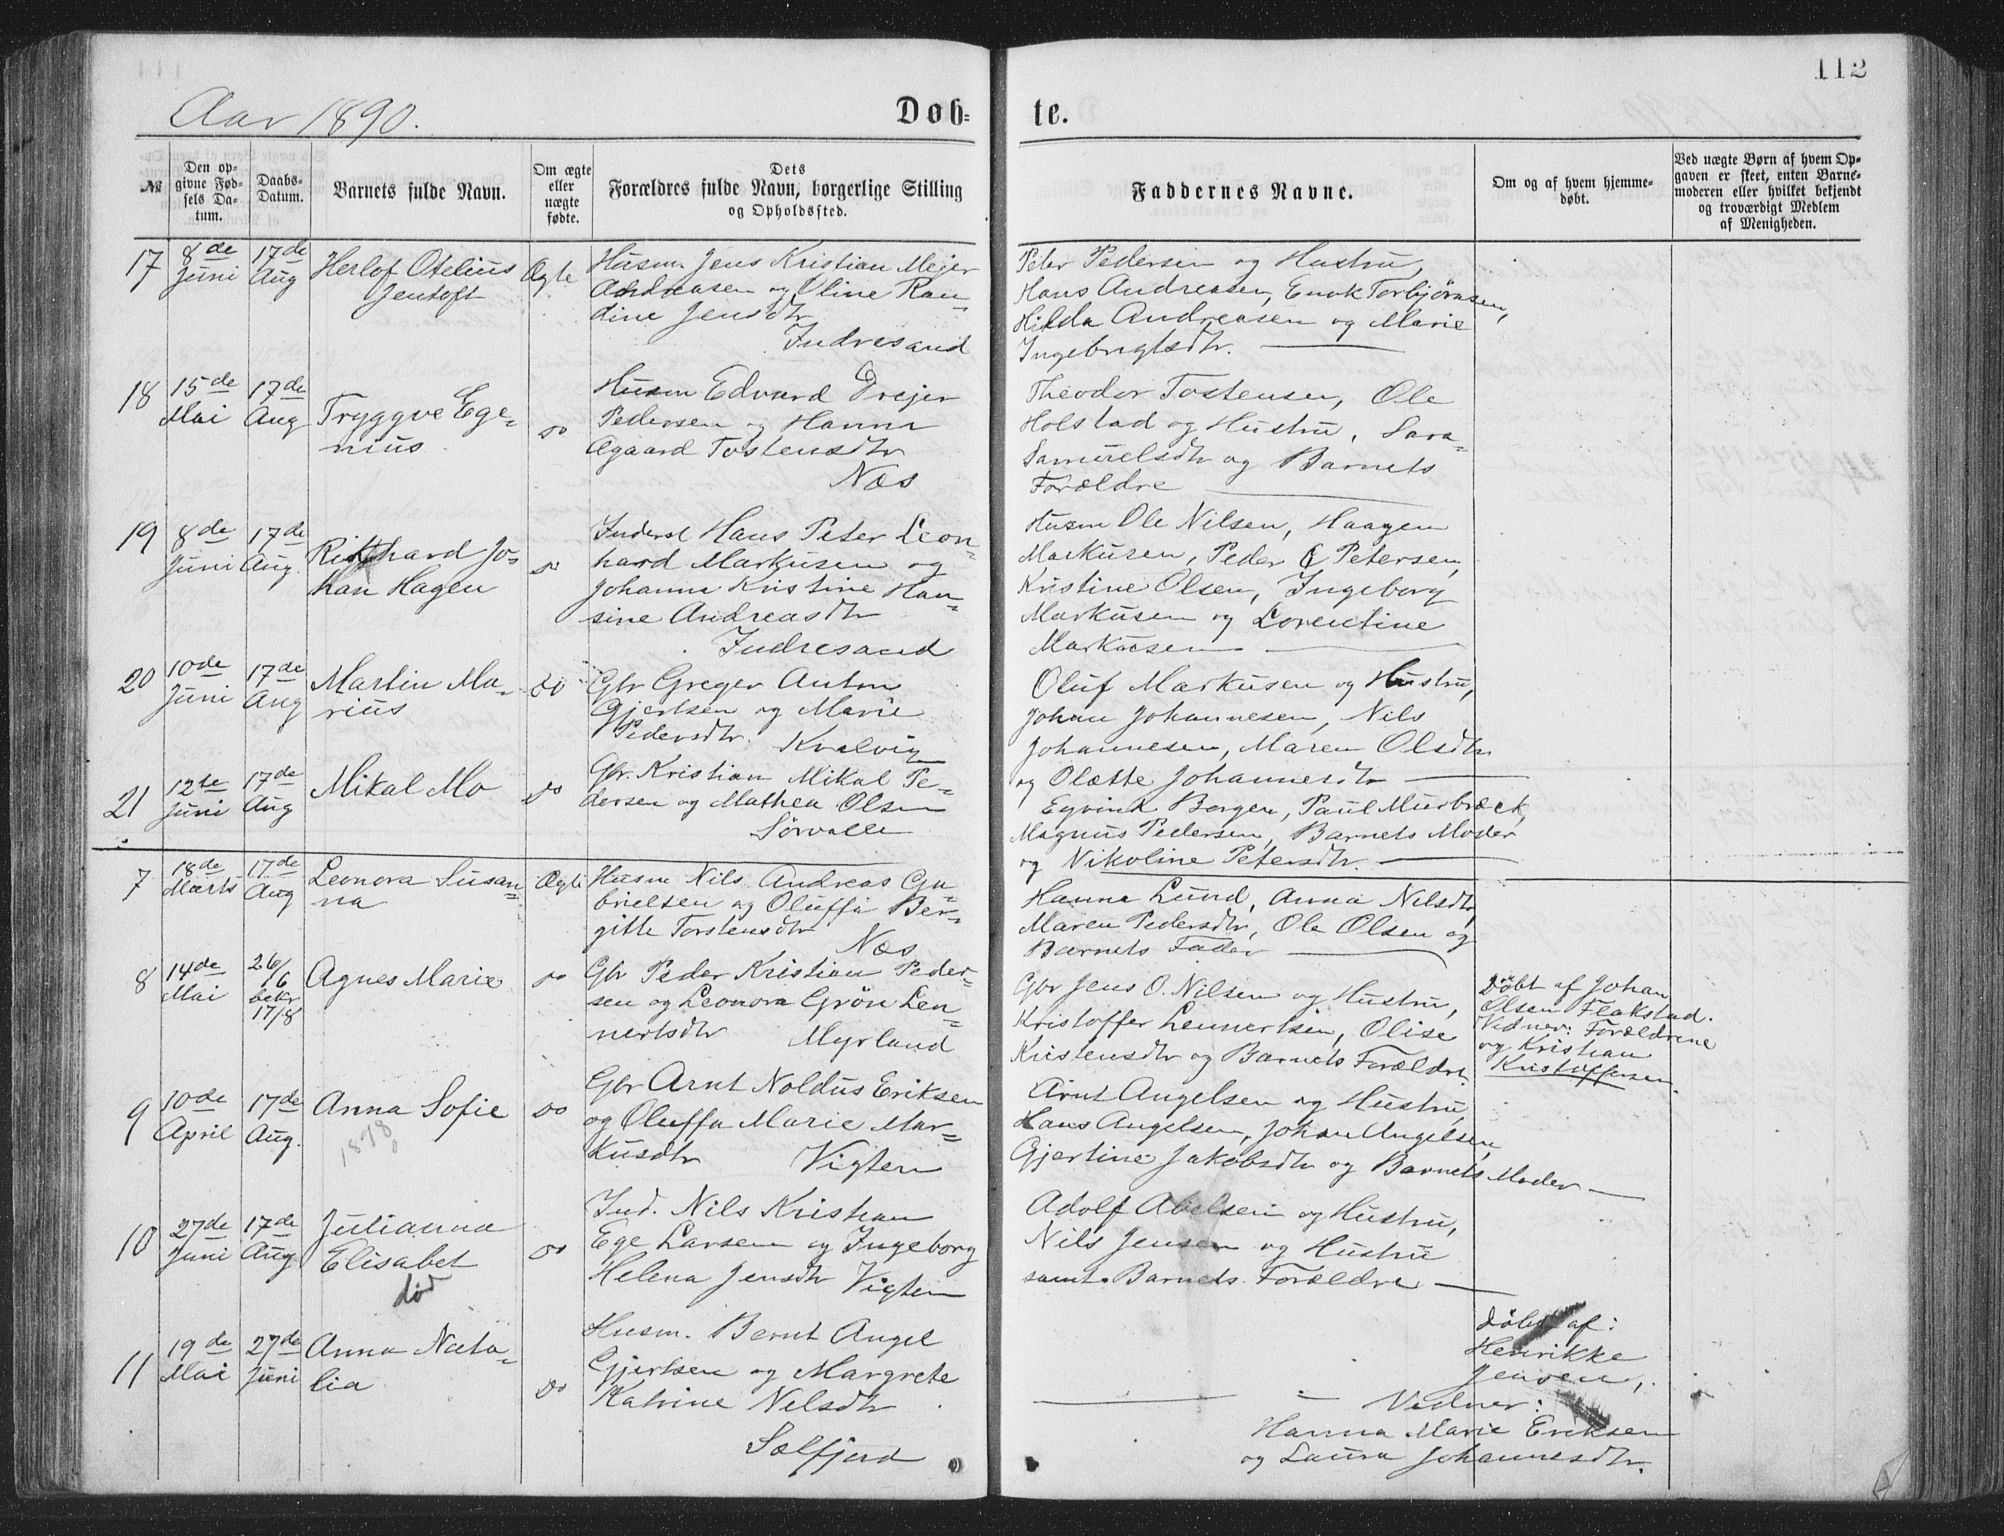 112
Aar 1890.
Døb-
te.
№
Den op-
givne Fød-
sels Da-
tum.
Daabs-
Datum.
Barnets fulde Navn.
Om ægte
eller
uægte
fødte.
Dets
Forældres fulde Navn, borgerlige Stilling
og Opholdssted.
Faddernes Navne.
Om og af hvem hjemme-
døbt.
Ved uægte Børn af hvem Op-
gaven er skeet, enten Barne-
moderen eller hvilket bekjendt
og troværdigt Medlem
af Menigheden.
17
8de
Juni
17de
Aug
Herlof Otelius
Jentoft
Ægte
Husm Jens Kristian Mejer
Andreasen og Oline Ran-
dine Jensdtr
Indresand
Peter Pedersen og Hustru,
Hans Andreasen, Enok Torbjørnsen,
Hilda Andreasen og Marie
Ingebrigtsdtr.
18
15de
Mai
17de
Aug
Tryggve Ege-
nius
do
Husm Edvard Drejer
Pedersen og Hanna
Ægaard Tostensdtr
Næs
Theodor Tostensen, Ole
Holstad og Hustru, Sara
Samuelsdtr og Barnets
Forældre
19
8de
Juni
17de
Aug.
Rikhard Jo-
han Hagen
do
Inderst Hans Peter Leon-
hard Markusen og
Johanna Kristine Han-
sine Andreasdtr
Indresand
Husm Ole Nilsen, Haagen
Markusen, Peder Petersen,
Kristine Olsen, Ingeborg
Markusen og Lorentine
Markusen
20
10de
Juni
17de
Aug
Martin Ma-
rius
do
Gbr Greger Anton
Gjertsen og Marie
Pedersdtr. Kvalvig
Oluf Markusen og Hustru,
Johan Johannesen, Nils
Johannesen, Maren Olsdtr
og Olætte Johannesdtr
21
12te
Juni
17de
Aug
Mikal Mo
do
Gbr. Kristian Mikal Pe-
dersen og Mathea Olsen
Sørvalle
Egvind Borgen, Paul Murbræck,
Magnus Pedersen, Barnets Moder
og Nikoline Petersdtr.
7
18de
Marts
17de
Aug
Leonora Susan-
na
Ægte
Husm Nils Andreas Ga-
brielsen og Oluffa Ber-
gitte Torstensdtr
Næs
Hanna Lund, Anna Nilsdtr,
Maren Pedersdtr, Ole Olsen og
Barnets Fader
8
14de
Mai
26/6
bekr
17/8
Agnes Marie
do
Gbr Peder Kristian Peder-
sen og Leonora Grøn Len-
nertsdtr Myrland
Gbr Jens O. Nilsen og Hustru,
Kristoffer Lennertsen, Olise
Kristensdtr og Barnets Forældre.
Døbt af Johan
Olsen Flakstad.
Vidner: Forældrene
og Kristian
Kristoffersen
9
10de
April
17de
Aug.
Anna Sofie
1878
do
Gbr Arnt Noldus Eriksen
og Oluffa Marie Mar-
kusdtr Vigten
Arnt Angelsen og Hustru,
Hans Angelsen, Johan Angelsen,
Gjertine Jakobsdtr og Barnets Moder
10
27de
Juni
17de
Aug
Julianna
Elisabet
død
do
Ind. Nils Kristian
Ege Larsen og Ingeborg
Helena Jensdtr Vigten
Adolf Abelsen og Hustru,
Nils Jensen og Hustru
samt Barnets Forældre
11
19de
Mai
27de
Juni
Anna Nata-
lia
do
Husm. Bernt Angel
Gjertsen og Margrete
Katrine Nelsdtr
Sølfjord
Døbt af:
Henrikke
Jensen,
Vidner:
Hanna Marie Eriksen
og Laura Johannesdtr.